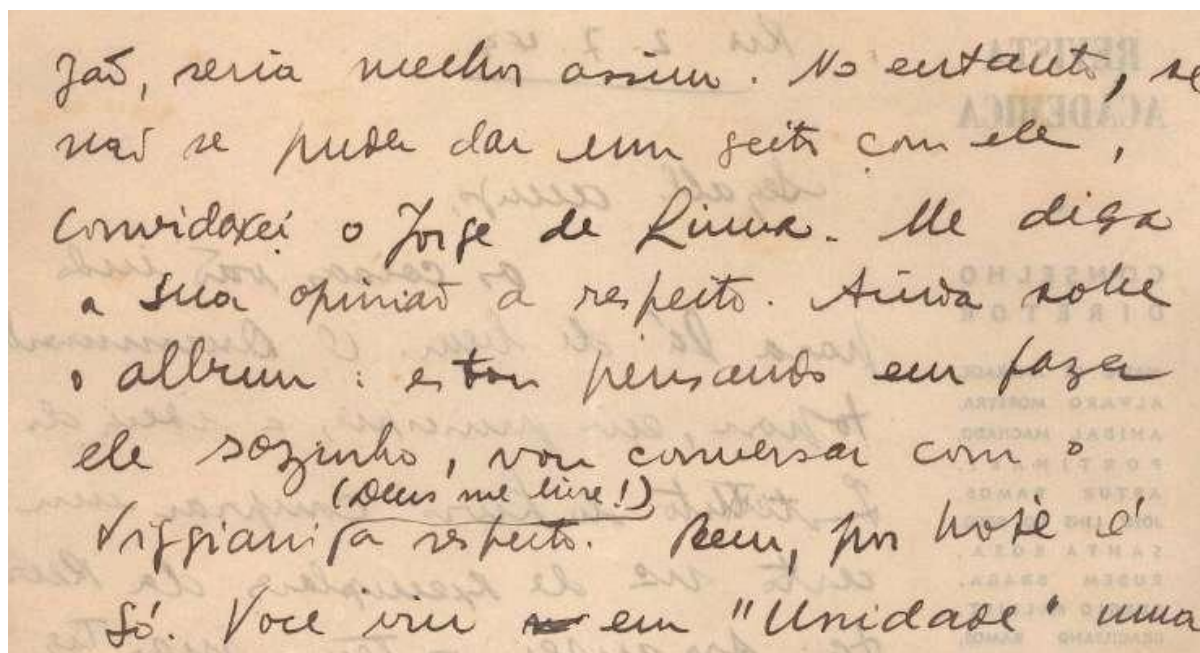 zão, seria melhor assim. No entanto, se
não se puder dar um geito com ele,
convidarei o Jorge de Lima. Me diga
a sua opinião a respeito. Ainda sobre
o album: estou pensando em fazer
ele sozinho, vou conversar com o
(Deus me livre!)
Viggiani a respeito. Bem, por hoje é
só. Voce viu em "Unidade" uma